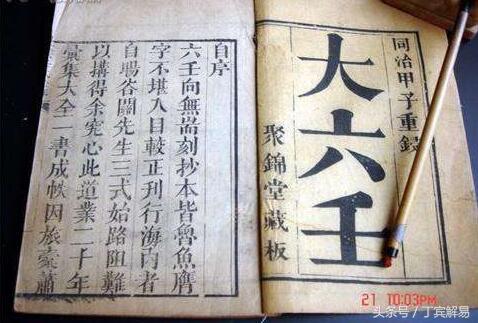 同治甲子重鐫
大六壬
聚錦堂藏板
自序
六壬向無耑刻抄本皆魯魚鴈
字不堪入目較正刊行海內者
自塲荅闗先生三式始路阻難
以搆得余究心此道業二十年
彙集大全一書成帙因旅橐蕭
21 10:03PM
头条号 / 丁宾解易